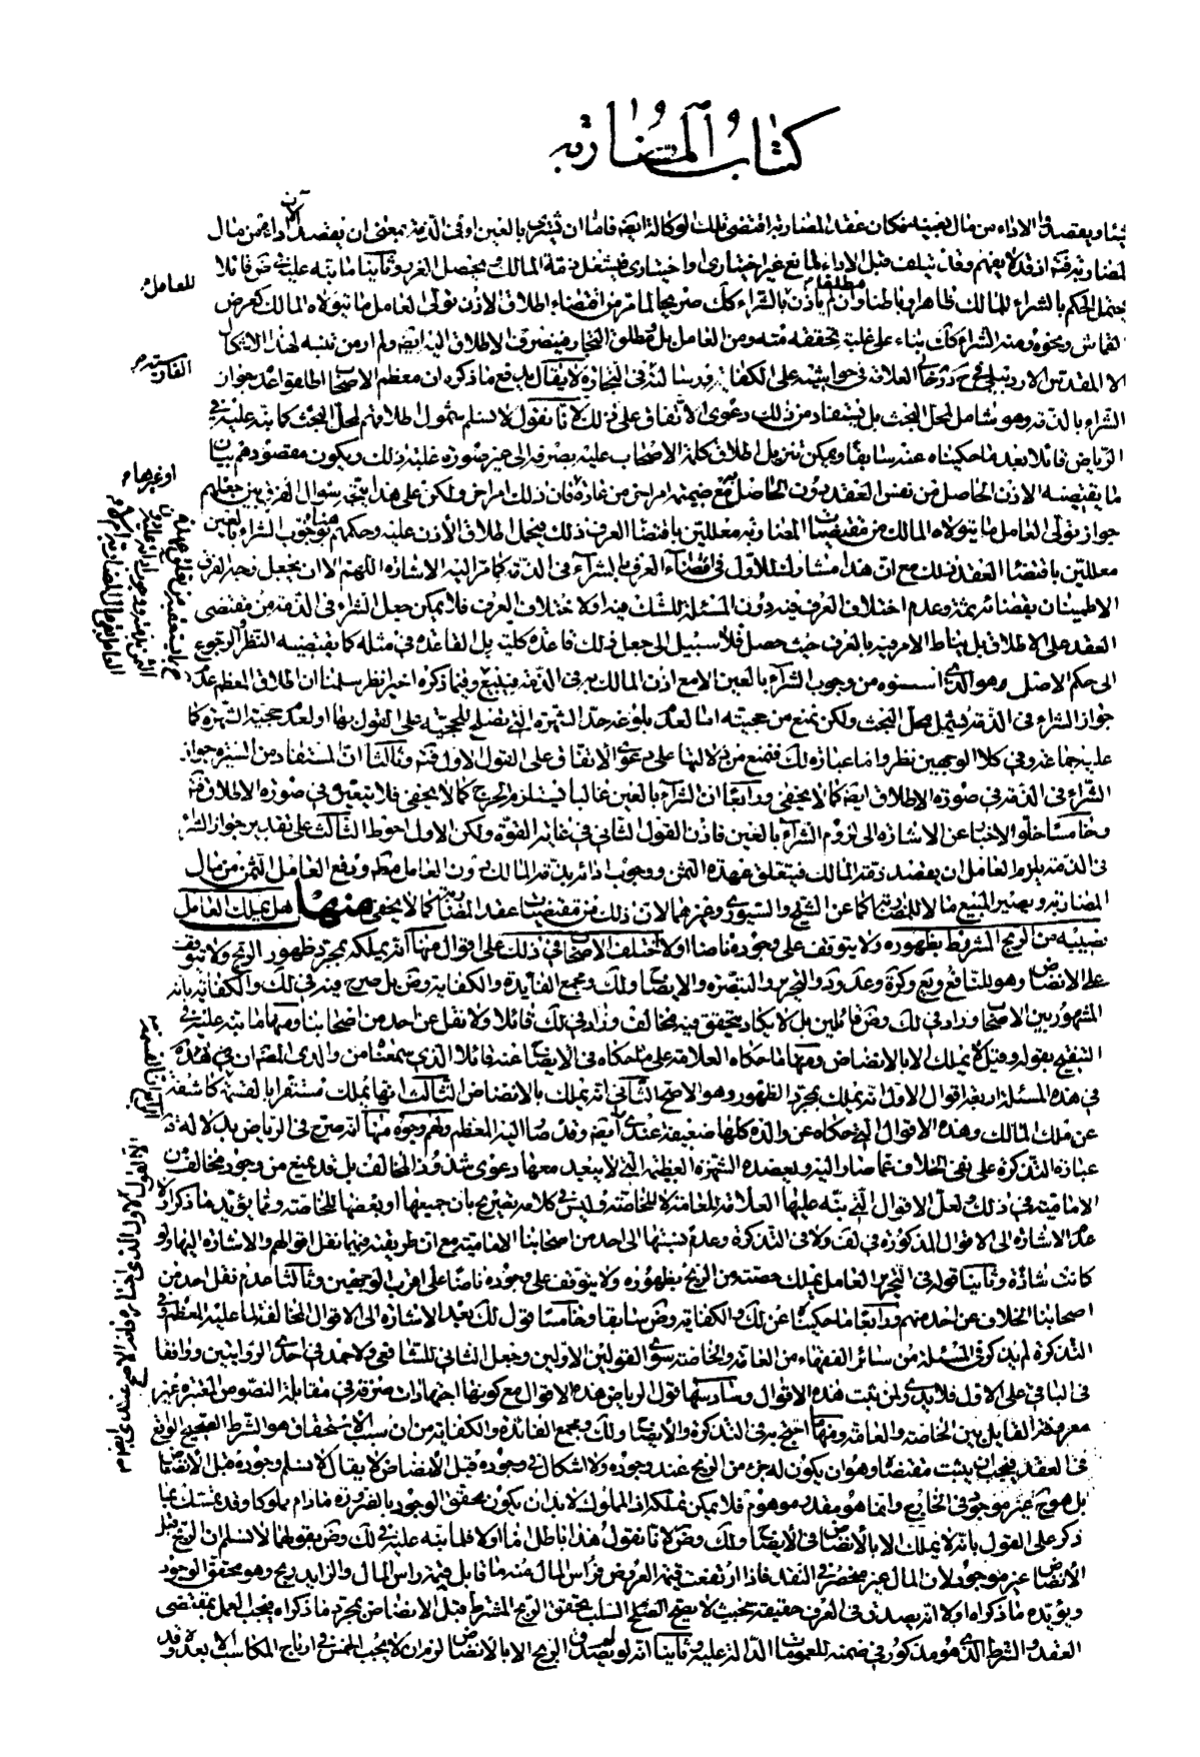 كتاب المضاربة
شيئا ويقصد في الاداء من مال نفسه فكان عقد المضاربة اقتضى تلك الوكالة ايضا فاما ان يشترى بالعين او في الذمة بمعنى ان يقصد الآن اداء ثمن مال
المضاربة فتة اذ قد لا يفهم وقد يتلف قبل الاداء لمانع غير اختيارى او اختيارى فيشتغل ذمة المالك ويحصل الضرر وثانيا ما نبه عليه في قائلا
يحتمل الحكم بالشراء للمالك ظاهرا وباطنا وان لم ياذن بالشراء كك صريحا لما مر من اقتضاء اطلاق الاذن تولى العامل ما يتولاه المالك كعرض
القماش ونحوه ومنه الشراء كك بناء على غلبة تحققه منه ومن العامل بل مطلق التجار فينصرف الاطلاق اليه ايضا ولم ار من تنبه لهذا الاشكال
الا المقدس الاردبيلى العلامة في حواشيه على الكفاية في التجارة لا يقال يدفع ما ذكر ان معظم الاصحاب اطلقوا عدم جواز
الشراء بالذمة وهو شامل لمحل البحث بل يستفاد من ذلك دعوى الاتفاق على ذلك لانا نقول لا نسلم شمول اطلاقهم لمحل البحث كما نبه عليه في
الرياض قائلا بعد ما حكيناه عنه سابقا ويمكن تنزيل اطلاق كلمة الاصحاب عليه بصرفه الى غير صورة غلبة ذلك ويكون مقصودهم بيان
ما يقتضيه الاذن الحاصل من نفس العقد دون الحاصل مع ضميمة امر اخر من عادة فان ذلك امر اخر ولكن على هذا يتجه سؤال الفرق بين جعلهم
جواز تولى العامل ما يتولاه المالك من مقتضيات المضاربة معللين باقتضاء العرف ذلك فيحمل اطلاق الاذن عليه وحكمهم هنا بوجوب الشراء بالعين
معللين باقتضاء العقد ذلك مع ان هذا مشارك للاول في اقتضاء العرف الشراء في الذمة كما مر اليه الاشارة اللهم الا ان يجعل وجه الفرق
الاطمينان بقضائه ثمة وعدم اختلاف العرف فيه دون المسئلة للشك فيه او لاختلاف العرف فلا يمكن جعل الشراء في الذمة من مقتضى
العقد على الاطلاق بل يناط الامر فيه بالعرف حيث حصل فلا سبيل الى جعل ذلك قاعدة كلية بل القاعدة في مثله كما يقتضيه النظر الرجوع
الى حكم الاصل وهو الذى اسسوه من وجوب الشراء بالعين الا مع اذن المالك به في الذمة فيتبع وفيما ذكره اخيرا نظر سلمنا ان اطلاق المعظم عدم
جواز الشراء في الذمة يشمل محل البحث ولكن نمنع من حجيته اما لعدم بلوغه حد الشهرة التى تصلح للحجية على القول بها او لعدم حجية الشهرة كما
عليه جماعة وفي كلا الوجهين نظر واما عبارة لك فنمنع من دلالتها على دعوى الاتفاق على القول الاول فتة وثالثا ان المستفاد من السيرة جواز
الشراء في الذمة في صورة الاطلاق ايضا كما لا يخفى ورابعا ان الشراء بالعين غالبا فيستلزم الحرج كما لا يخفى فلا يتعين في صورة الاطلاق فتة
وخامسا خلو الاخبار عن الاشارة الى لزوم الشراء بالعين فاذن القول الثانى في غاية القوة ولكن الاول احوط الثالث على تقدير جواز الشراء
في الذمة يلزم العامل ان يقصد ذمة المالك فيتعلق عهدة الثمن ووجوب ادائه بذمة المالك دون العامل مطلقا ويدفع العامل الثمن من مال
المضاربة ويصير المبيع مالا للمضاربة كما عن الشيخ والسيورى وغيرهما لان ذلك من مقتضيات عقد المضاربة كما لا يخفى منها هل يملك العامل
نصيبه من الربح المشروط بظهوره ولا يتوقف على وجوده ناضا او لا اختلف الاصحاب في ذلك على اقوال منها انه يملكه بمجرد ظهور الربح ولا يتوقف
على الانضاض وهو للنافع ويع وكرة وعد ود والتحرير والتبصرة والايضاح ولك ومجمع الفائدة والكفاية وض بل صرح فيه في لك والكفاية بانه
المشهور بين الاصحاب وزاد في لك وض قائلين بل لا يكاد يتحقق فيه مخالف وزاد في لك قائلا ولا نقل عن احد من اصحابنا ومنها ما نبه عليه في
التنقيح بقوله وقيل لا يملك الا بالانضاض ومنها ما حكاه العلامة على ما حكاه في الايضاح عنه قائلا الذى سمعناه من والدى
في هذه المسئلة اربعة اقوال الاول انه يملك بمجرد الظهور وهو الاصح الثانى انه يملك بالانضاض الثالث انها يملك مستقرا بالقسمة كاشفة
عن ملك المالك وهذه الاقوال التى حكاه عن والده كلها ضعيفة عندى ايضا وقد صار اليه المعظم ولهم وجوه منها انه صرح في الرياض بدلالة
عبارة التذكرة على نفى الخلاف عما صار اليه ويعضده الشهرة العظيمة التى لا يبعد معها دعوى شذوذ المخالف بل قد يمنع من وجود مخالف من
الامامية في ذلك ولعل الاقوال التى نبه عليها العلامة للعامة لا للخاصة وليس في كلامه تصريح بان جميعها او بعضها للخاصة ومما يؤيد ما ذكر اولا
عدم الاشارة الى الاقوال المذكورة في لف ولا في التذكرة وعدم نسبتها الى احد من اصحابنا الامامية مع ان طريقته فيهما نقل اقوالهم والاشارة اليها ولو
كانت شاذة وثانيا قوله في التحرير العامل يملك حصته من الربح بظهوره ولا يتوقف على وجوده ناضا على اقرب الوجهين وثالثا عدم نقل احد من
اصحابنا الخلاف عن احد منهم ورابعا ما حكيناه عن لك والكفاية وض سابقا وخامسا قول لك بعد الاشارة الى الاقوال المخالفة لما عليه المعظم وفي
التذكرة لم يذكر في المسئلة من سائر الفقهاء من العامة والخاصة سوى القولين الاولين وجعل الثانى للشافعى ولاحمد في احدى الروايتين ووافقا
في الباقى على الاول فلا يدرى لمن نسبت هذه الاقوال وسادسها قول الرياض هذه الاقوال مع كونها اجتهادات صرفة في مقابلة النصوص المعتبرة غير
معروفة القايل بين الخاصة والعامة ومنها ما احتج به في التذكرة والايضاح ولك ومجمع الفائدة والكفاية من ان سبب الاستحقاق هو الشرط الصحيح الواقع
في العقد فيجب ان يثبت مقتضاه وهو ان يكون له جزء من الربح عند وجوده ولا اشكال في وجوده قبل الانضاض لا يقال لا نسلم وجوده قبل الانضاض
بل هو ح غير موجود في الخارج وانما هو مقدر موهوم فلا يمكن تملكه اذ المملوك لا بد ان يكون محقق الوجود بالضرورة ما دام مملوكا وقد تمسك بما
ذكر على القول بانه لا يملك الا بالانضاض في الايضاح ولك وض لانا نقول هذا باطل اما اولا فلما نبه عليه في لك وض بقولهما لا نسلم ان الربح قبل
الانضاض غير موجود لان المال غير منحصر في النقد فاذا ارتفعت قيمة العروض فراس المال منه ما قابل قيمته راس المال والزايد ربح وهو محقق الوجود
ويؤيده ما ذكراه اولا انه يصدق في العرف حقيقة بحيث لا يصح السلب تحقق الربح المشترط قبل الانضاض بمجرد ما ذكراه فيجب العمل بمقتضى
العقد والشرط الذى هو مذكور في ضمنه للعمومات الدالة عليه وثانيا انه لو لم يصدق الربح الا بالانضاض لزم ان لا يجب الخمس في ارباح المكاسب الا بعده وقد
للعامل
مطلقا
القول الاول الذى اختاره فانه الاصح عندى ايضا
او غيرها